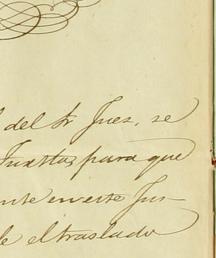 del Sr Juez, se
Fuxtla, para que
nte en este Jus-
de el traslado